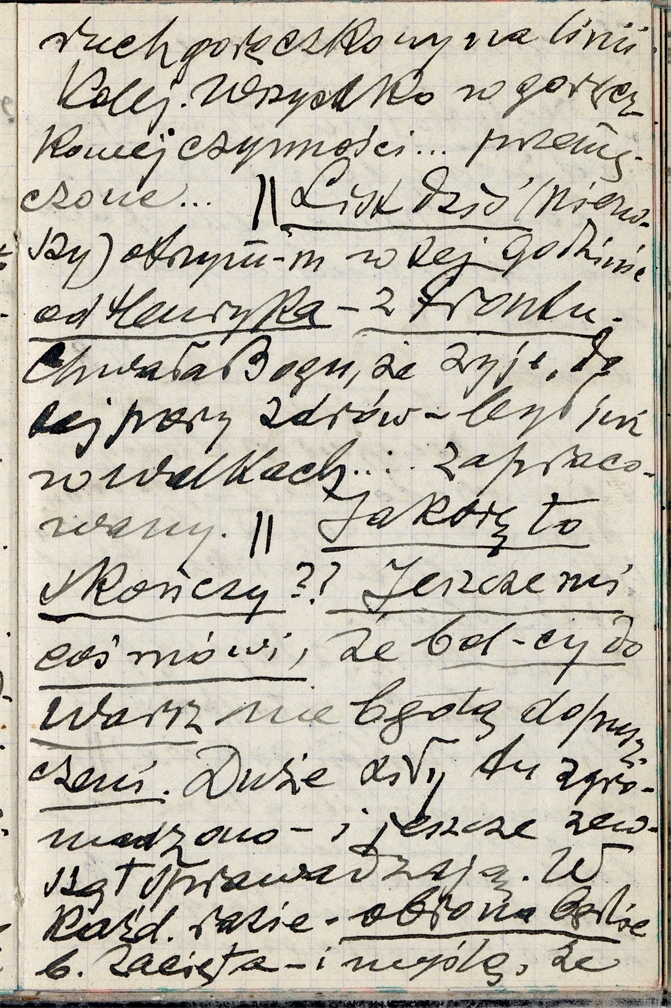 ruch gorączkowy na linii
Kolej. Wszystko w gorącz-
kowej czynności... przemę-
czone... || List dziś (pierw-
szy) otrzym-m w tej godzinie
od Henryka – z frontu.
Chwała Bogu, że żyje, do
tej pory zdrów – był już
w walkach.... zapraco-
wany. || Jak się to
skończy?? Jeszcze mi
coś mówi, że bol-cy do
Warsz nie będą dopusz
czeni. Duże siły tu zgro-
madzono – i jeszcze zew-
sząd sprowadzają. W
każd. razie – obrona będzie
b. zacięta – i myślę, że